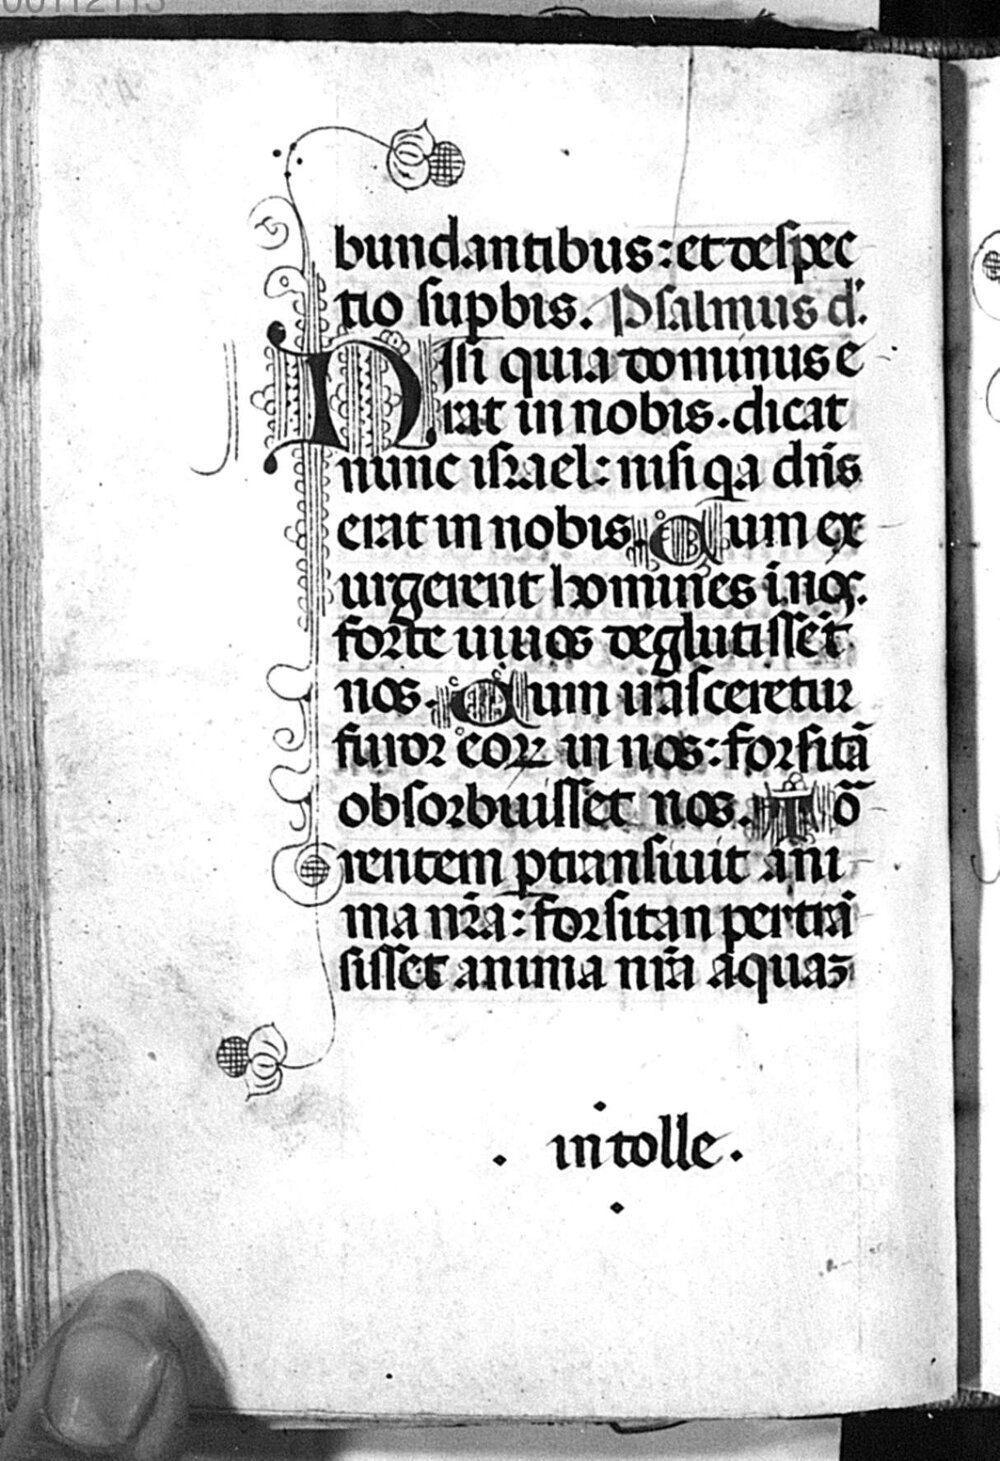 00112113
bundantibus: et despec
tio supbis. Psalmus d'.
Nisi quia dominus e
rat in nobis. dicat
nunc israel: nisi qa dn̄s
erat in nobis. Cum ex
urgerent homines i nos.
forte uiuos deglutissēt
nos. Cum irāsceretur
furor eoꝝ in nos: forsitā
obsorbuisset nos. Tō
rentem ptransiuit ani
ma nr̄a: forsitan pertrā
sisset anima nr̄a aquaꝫ
. intolle .